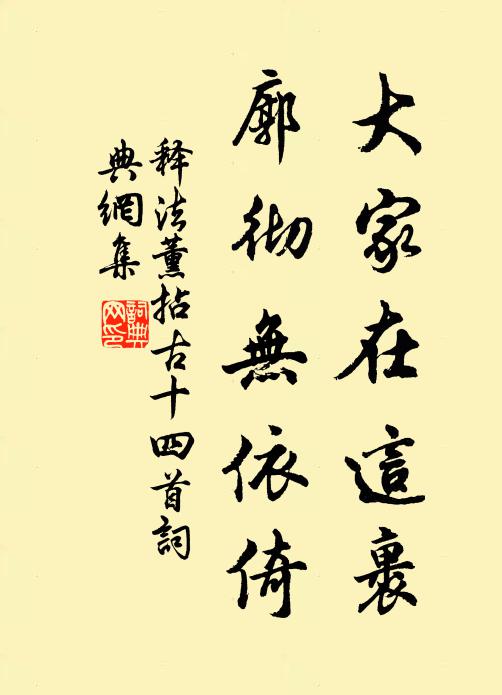 大家在這裹
廓彻無依倚
释法薰拈古十四首詞
典網集
詞典
网印